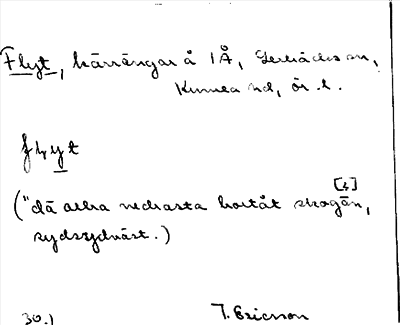 Flyt, kärrängar å 1 Å, Gerbäcks sn,
Kumla hd, ör. l.
flyt
[ʒ]
("dä allra nedrasta bortåt skogän,
sydsydväst.)
30.) J. Ericson